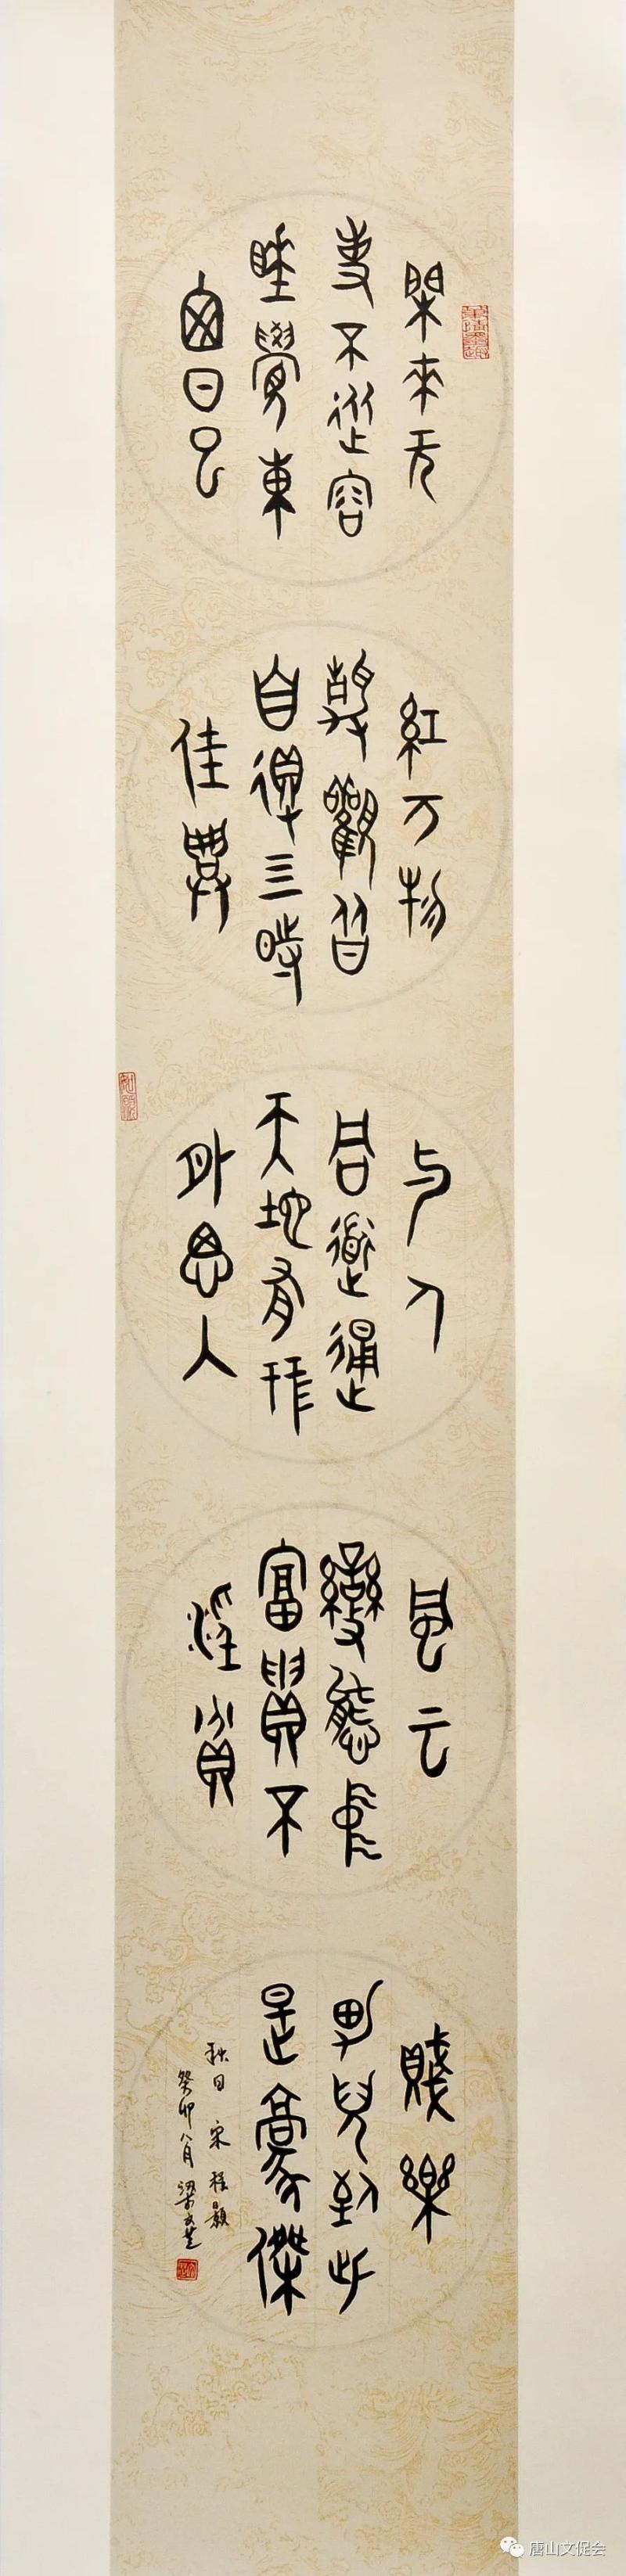 閑来无
事不從容
睡覺東
窗日已
紅万物
静觀皆
自得四時
佳興
与人
同道通
天地有形
外思入
風云
變態中
富貴不
淫貧
賤樂
男兒到此
是豪傑
秋日 宋 程顥
癸卯八月 梁
唐山文促会